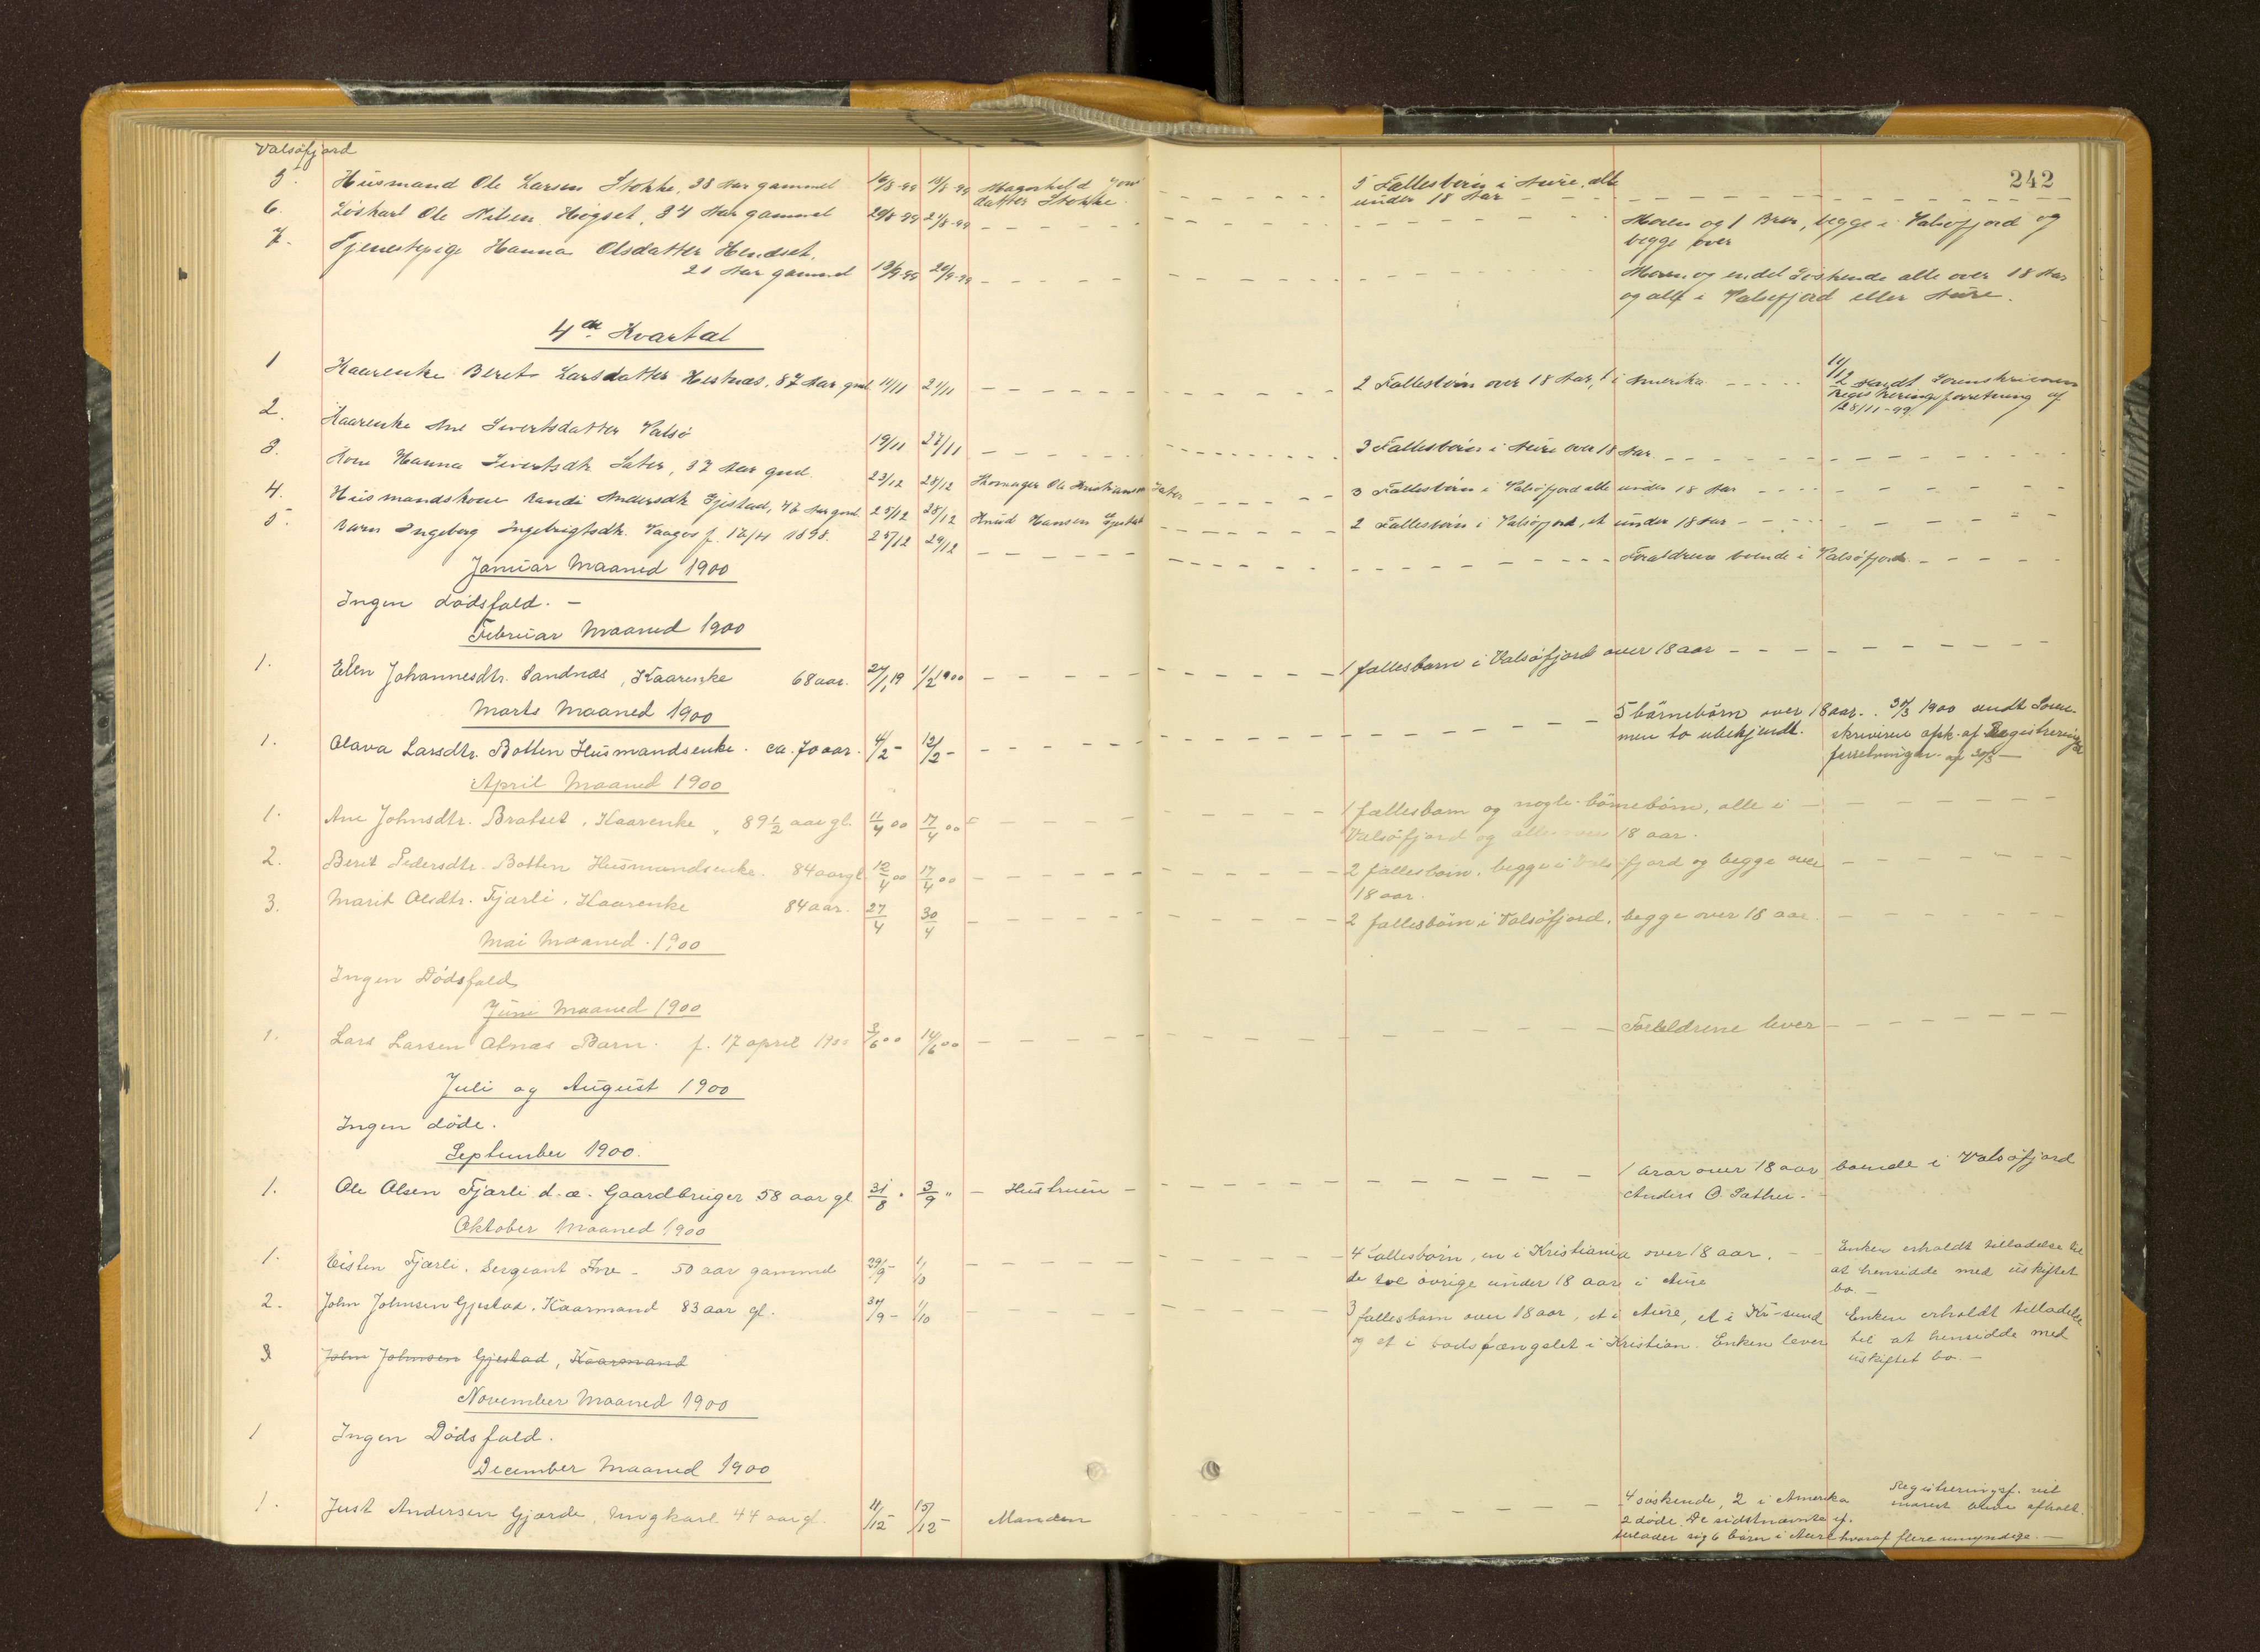 Valsøfjord
242
5. Husmand Ole Larsen Stokke, 38 Aar gammel 16/8-99 19/8-99 datter Stokke. 5 Fællesbörn i Aure, alle
under 18 Aar
6. Löskarl Ole Nilsen Högset, 34 Aar gammel 20/8-99 27/8-99 Moren og 1 Bror, begge i Valsöfjord og
begge over
7. Tjenestepige Hanna Olsdatter Hendset,
21 Aar gammel 13/9-99 20/9-99 Moren og endel Söskende alle over 18 Aar
og alle i Valsöfjord eller Aure.
4de Kvartal
1 Kaarenke Beret Larsdatter Hestnæs, 87 Aar gml 14/11 21/11 2 Fællesbörn over 18 Aar, 1 i Amerika 14/12 sendt Sorenskriveren
Registreringsforretning af
28/11-99
2. Kaarenke Ane Sivertsdatter Valsö 19/11 27/11 3 Fællesbörn i Aure over 18 Aar
3. Kone Hanna Sivertsdtr Sæter, 37 Aar gml 23/12 28/12 Skomager Ole Kristiansen Sæter 3 Fællesbörn i Valsöfjord alle under 18 Aar
4. Husmandskone Randi Andersdtr Gjestad, 46 Aar gml 25/12 28/12 Knud Hansen Gjestad 2 Fællesbörn i Valsöfjord, et under 18 Aar
5. Barn Ingeborg Ingebrigtsdtr. Vaagos f. 12/4 1898. 25/12 29/12 Forældrene boende i Valsöfjord
Januar Maaned 1900
Ingen dödsfald. -
Februar Maaned 1900
1. Elen Johannesdtr. Sandnæs, Kaarenke 68 aar. 27/1 19 1/2 1900 1 fællesbarn i Valsöfjord over 18 aar
Marts Maaned 1900
1. Olava Larsdtr. Botten Husmandsenke. ca. 70 aar. 4/2- 12/2- 5 börnebörn over 18 aar. 30/3 1900 sendt Soren-
men to ubekjendt. skriveren afsk. af Registrerings
forretningen af 30/3
April Maaned 1900
1. Ane Johnsdtr. Bratset, Kaarenke, 89½ aar gl. 11/4 00 17/4 00 1 fællesbarn og nogle börnebörn, alle i
Valsöfjord og alle over 18 aar.
2. Berit Pedersdtr. Botten Husmandsenke. 84 aar gl 12/4 00 17/4 00 2 fællesbörn, begge i Valsöfjord og begge over
18 aar.
3. Marit Olsdtr. Fjærli, Kaarenke 84 aar. 27/4 30/4 2 fællesbörn i Valsöfjord, begge over 18 aar.
Mai Maaned 1900
Ingen Dödsfald
Juni Maaned 1900
1. Lars Larsen Alnæs Barn. f. 17 april 1900 3/6 00 14/6 00 Forældrene lever
Juli og August 1900
Ingen döde.
September 1900.
1. Ole Olsen Fjærli d. æ. Gaardbruger 58 aar gl 31/8 " 3/9 " - Hustruen - 1 bror over 18 aar boende i Valsöfjord
Anders O. Sæther.
Oktober Maaned 1900
1. Eisten Fjærli, Sergeant 50 aar gammel 29/9- 1/10 4 Fællesbörn, en i Kristiania over 18 aar. Enken erholdt tilladelse til
de tre övrige under 18 aar i Aure at hensidde med uskiftet
bo. -
2. John Johnsen Gjestad, Kaarmand 83 aar gl. 30/9- 1/10 3 fællesbarn over 18 aar, et i Aure, et i Kr-sund Enken erholdt tilladelse
og et i bodsfængslet i Kristian. Enken lever til at hensidde med
uskiftet bo. -
3 John Johnsen Gjestad, Kaarmand
November Maaned 1900
1 Ingen Dödsfald.
December Maaned 1900
1. Just Andersen Gjærde, Ungkarl 44 aar gl. 11/12- 15/12- Manden 4 söskende, 2 i Amerika Registreringsf. vil
2 döde. De sidstnævnte ef. snarest blive afholdt.
terlader sig 6 börn i Aure hvoraf flere umyndige. -